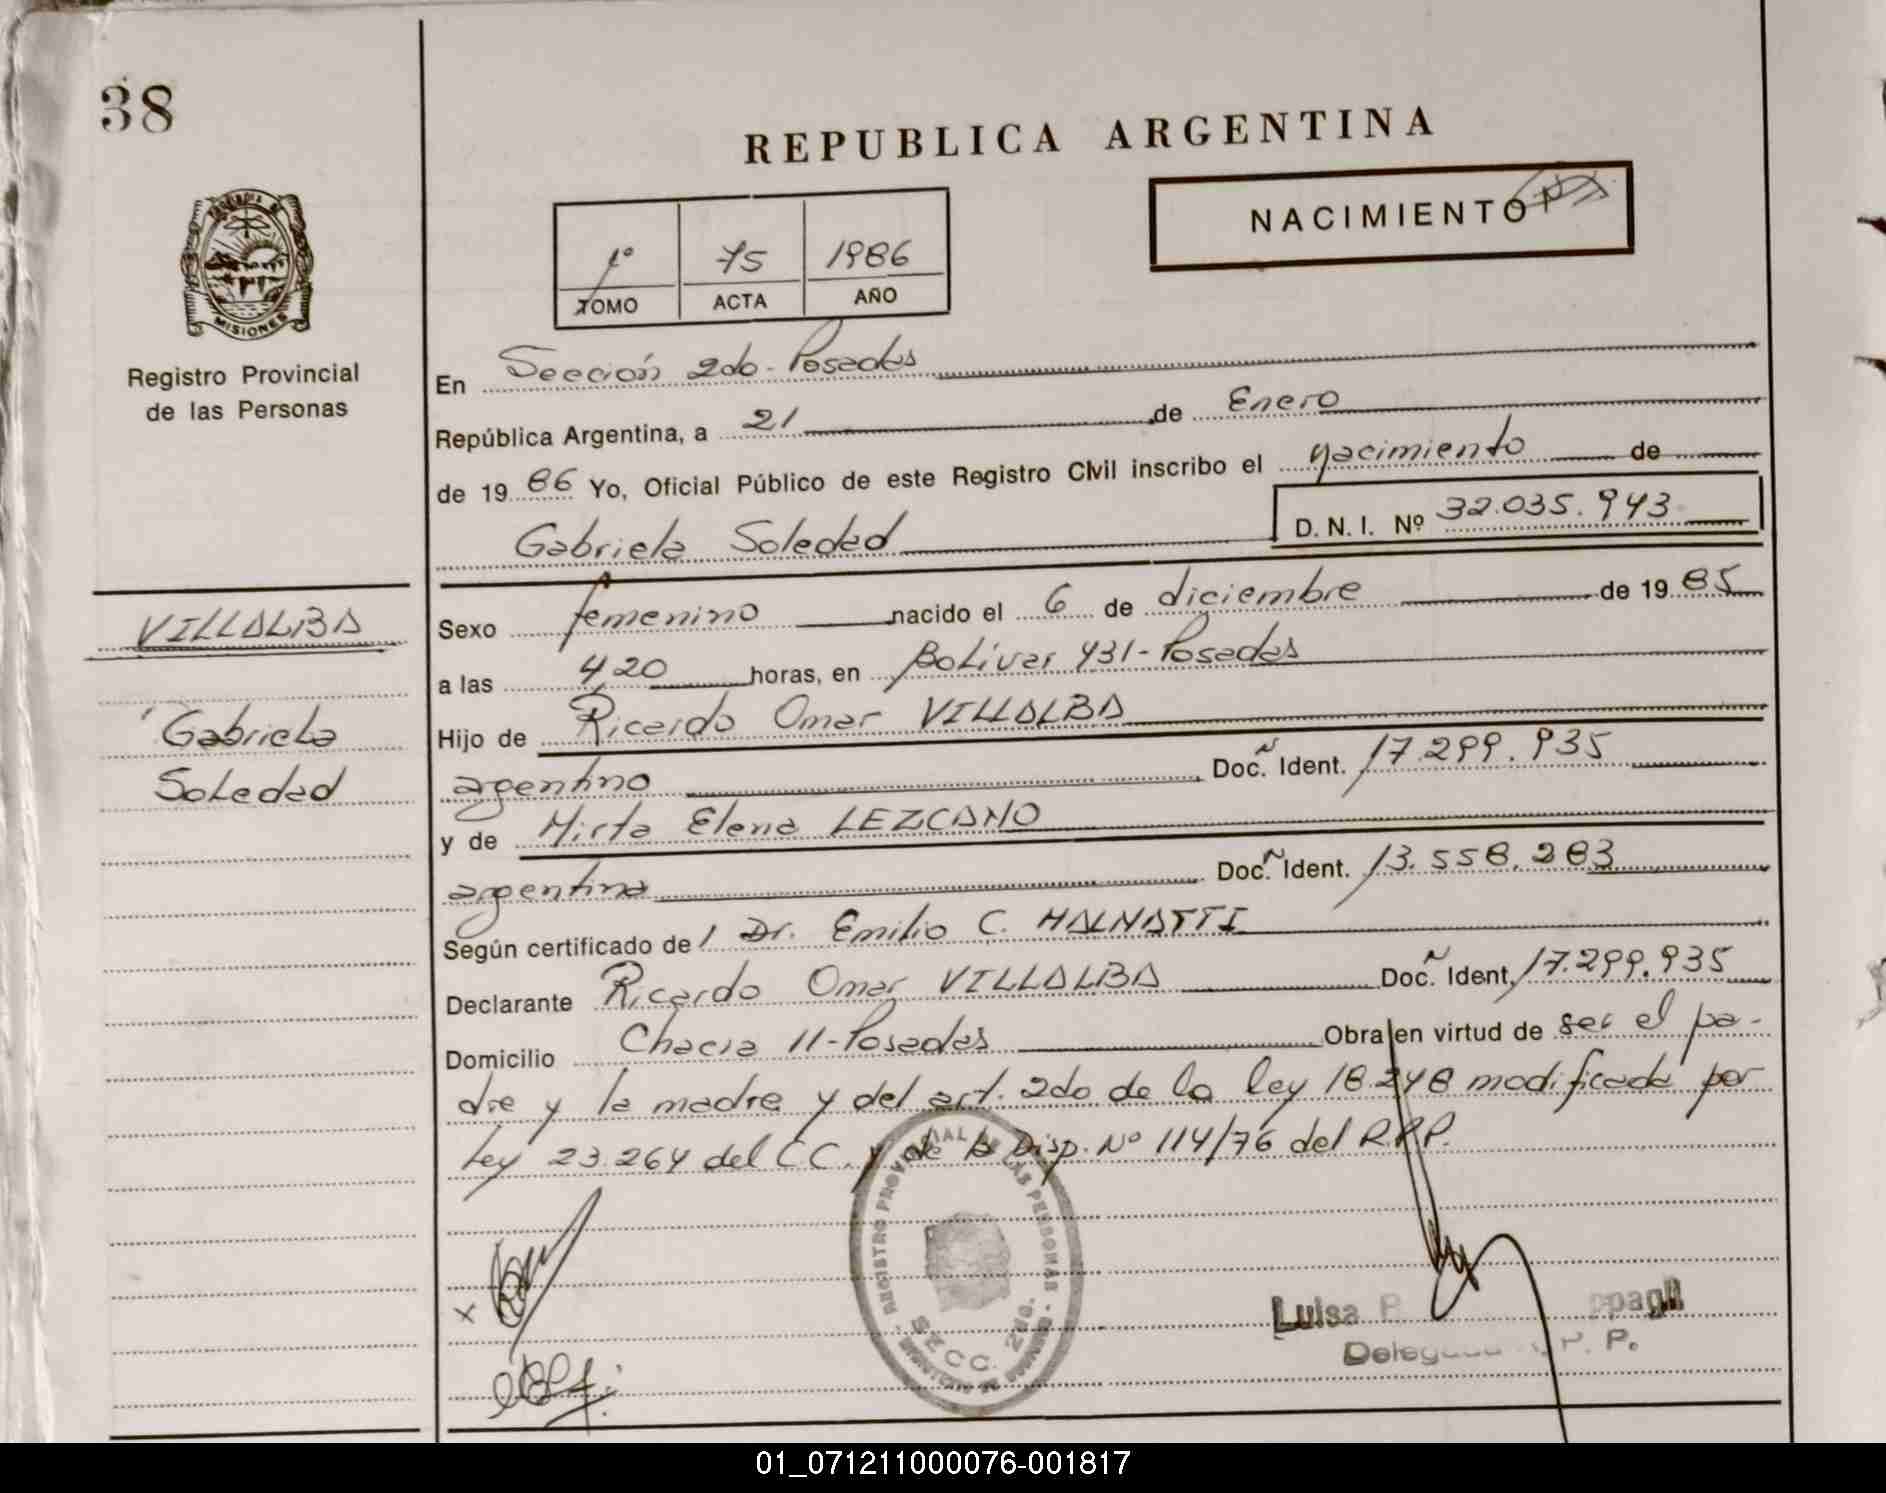 38
REPUBLICA ARGENTINA
NACIMIENTO
1º 75 1986
TOMO ACTA AÑO
MISIONES
Registro Provincial
de las Personas
En Sección 2da - Posadas
República Argentina, a 21 de Enero
de 19 86 Yo, Oficial Público de este Registro Civil inscribo el nacimiento de
Gabriela Soledad D.N.I. Nº 32.035.943
VILLALBA
Gabriela
Soledad
Sexo femenino nacido el 6 de diciembre de 19 85
a las 4 20 horas, en Bolívar 431 - Posadas
Hijo de Ricardo Omar VILLALBA
argentino Doc. Ident. 17.299.935
y de Mirta Elena LEZCANO
argentina Doc. Ident. 13.558.283
Según certificado del Dr. Emilio C. MALMATTI
Declarante Ricardo Omar VILLALBA Doc. Ident. 17.299.935
Domicilio Chacra 11 - Posadas Obra en virtud de ser el pa-
dre y la madre y del art. 2do de la ley 18.248 modificada por
Ley 23.264 del C.C. y de la Disp. Nº 114/76 del R.P.P.
REGISTRO PROVINCIAL DE LAS PERSONAS
SECC. 2da.
Luisa P.
P. P.
01_071211000076-001817